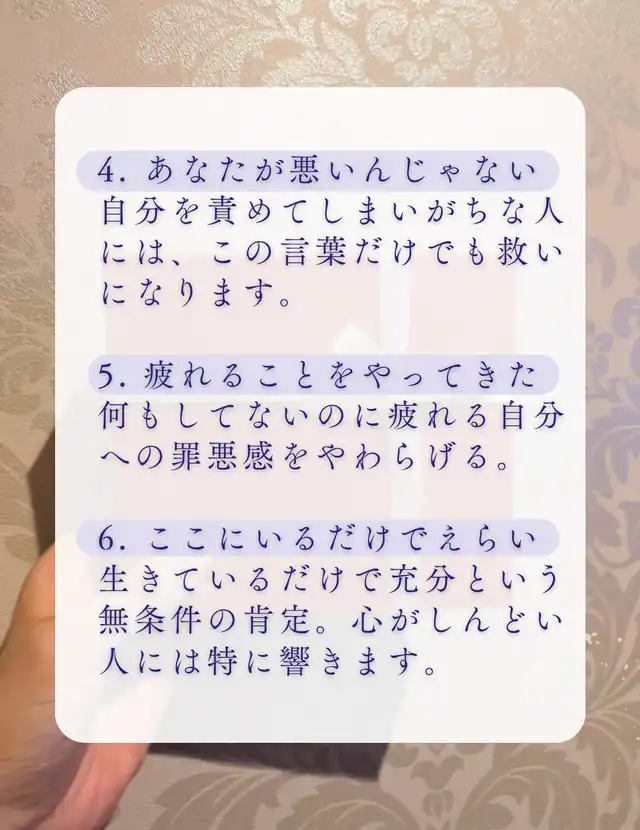 4. あなたが悪いんじゃない
自分を責めてしまいがちな人
には、この言葉だけでも救い
になります。
5. 疲れることをやってきた
何もしてないのに疲れる自分
への罪悪感をやわらげる。
6. ここにいるだけでえらい
生きているだけで充分という
無条件の肯定。心がしんどい
人には特に響きます。